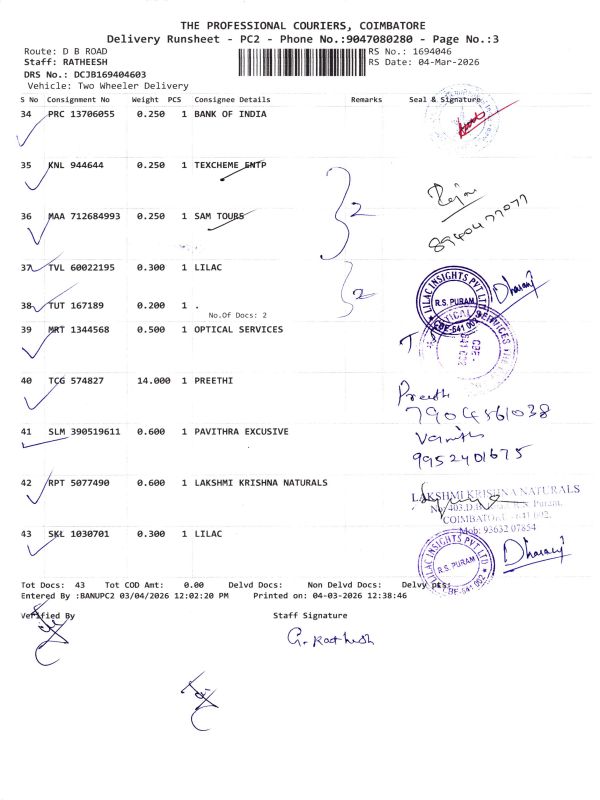 THE PROFESSIONAL COURIERS, COIMBATORE
Delivery Runsheet - PC2 - Phone No.:9047080280 - Page No.:3
Route: D B ROAD RS No.: 1694046
Staff: RATHEESH RS Date: 04-Mar-2026
DRS No.: DCJB169404603
Vehicle: Two Wheeler Delivery
S No Consignment No Weight PCS Consignee Details Remarks Seal & Signature
34 PRC 13706055 0.250 1 BANK OF INDIA
35 KNL 944644 0.250 1 TEXCHEME ENTP
2
36 MAA 712684993 0.250 1 SAM TOURS
8940477077
37 TVL 60022195 0.300 1 LILAC
2
LILAC INSIGHTS PVT LTD
R.S. PURAM
CBE-641 002
Dharanj
38 TUT 167189 0.200 1 .
No.Of Docs: 2
39 MRT 1344568 0.500 1 OPTICAL SERVICES
40 TCG 574827 14.000 1 PREETHI
Preethi
7904561038
41 SLM 390519611 0.600 1 PAVITHRA EXCUSIVE
9952401675
42 RPT 5077490 0.600 1 LAKSHMI KRISHNA NATURALS
LAKSHMI KRISHNA NATURALS
No. 403, D.B. Road, R.S. Puram,
COIMBATORE - 641 002.
Mob: 93632 07854
43 SKL 1030701 0.300 1 LILAC
LILAC INSIGHTS PVT LTD
R.S. PURAM
CBE-641 002
Dharanj
Tot Docs: 43 Tot COD Amt: 0.00 Delvd Docs: Non Delvd Docs: Delvy pts:
Entered By :BANUPC2 03/04/2026 12:02:20 PM Printed on: 04-03-2026 12:38:46
Verified By Staff Signature
G. Ratheesh